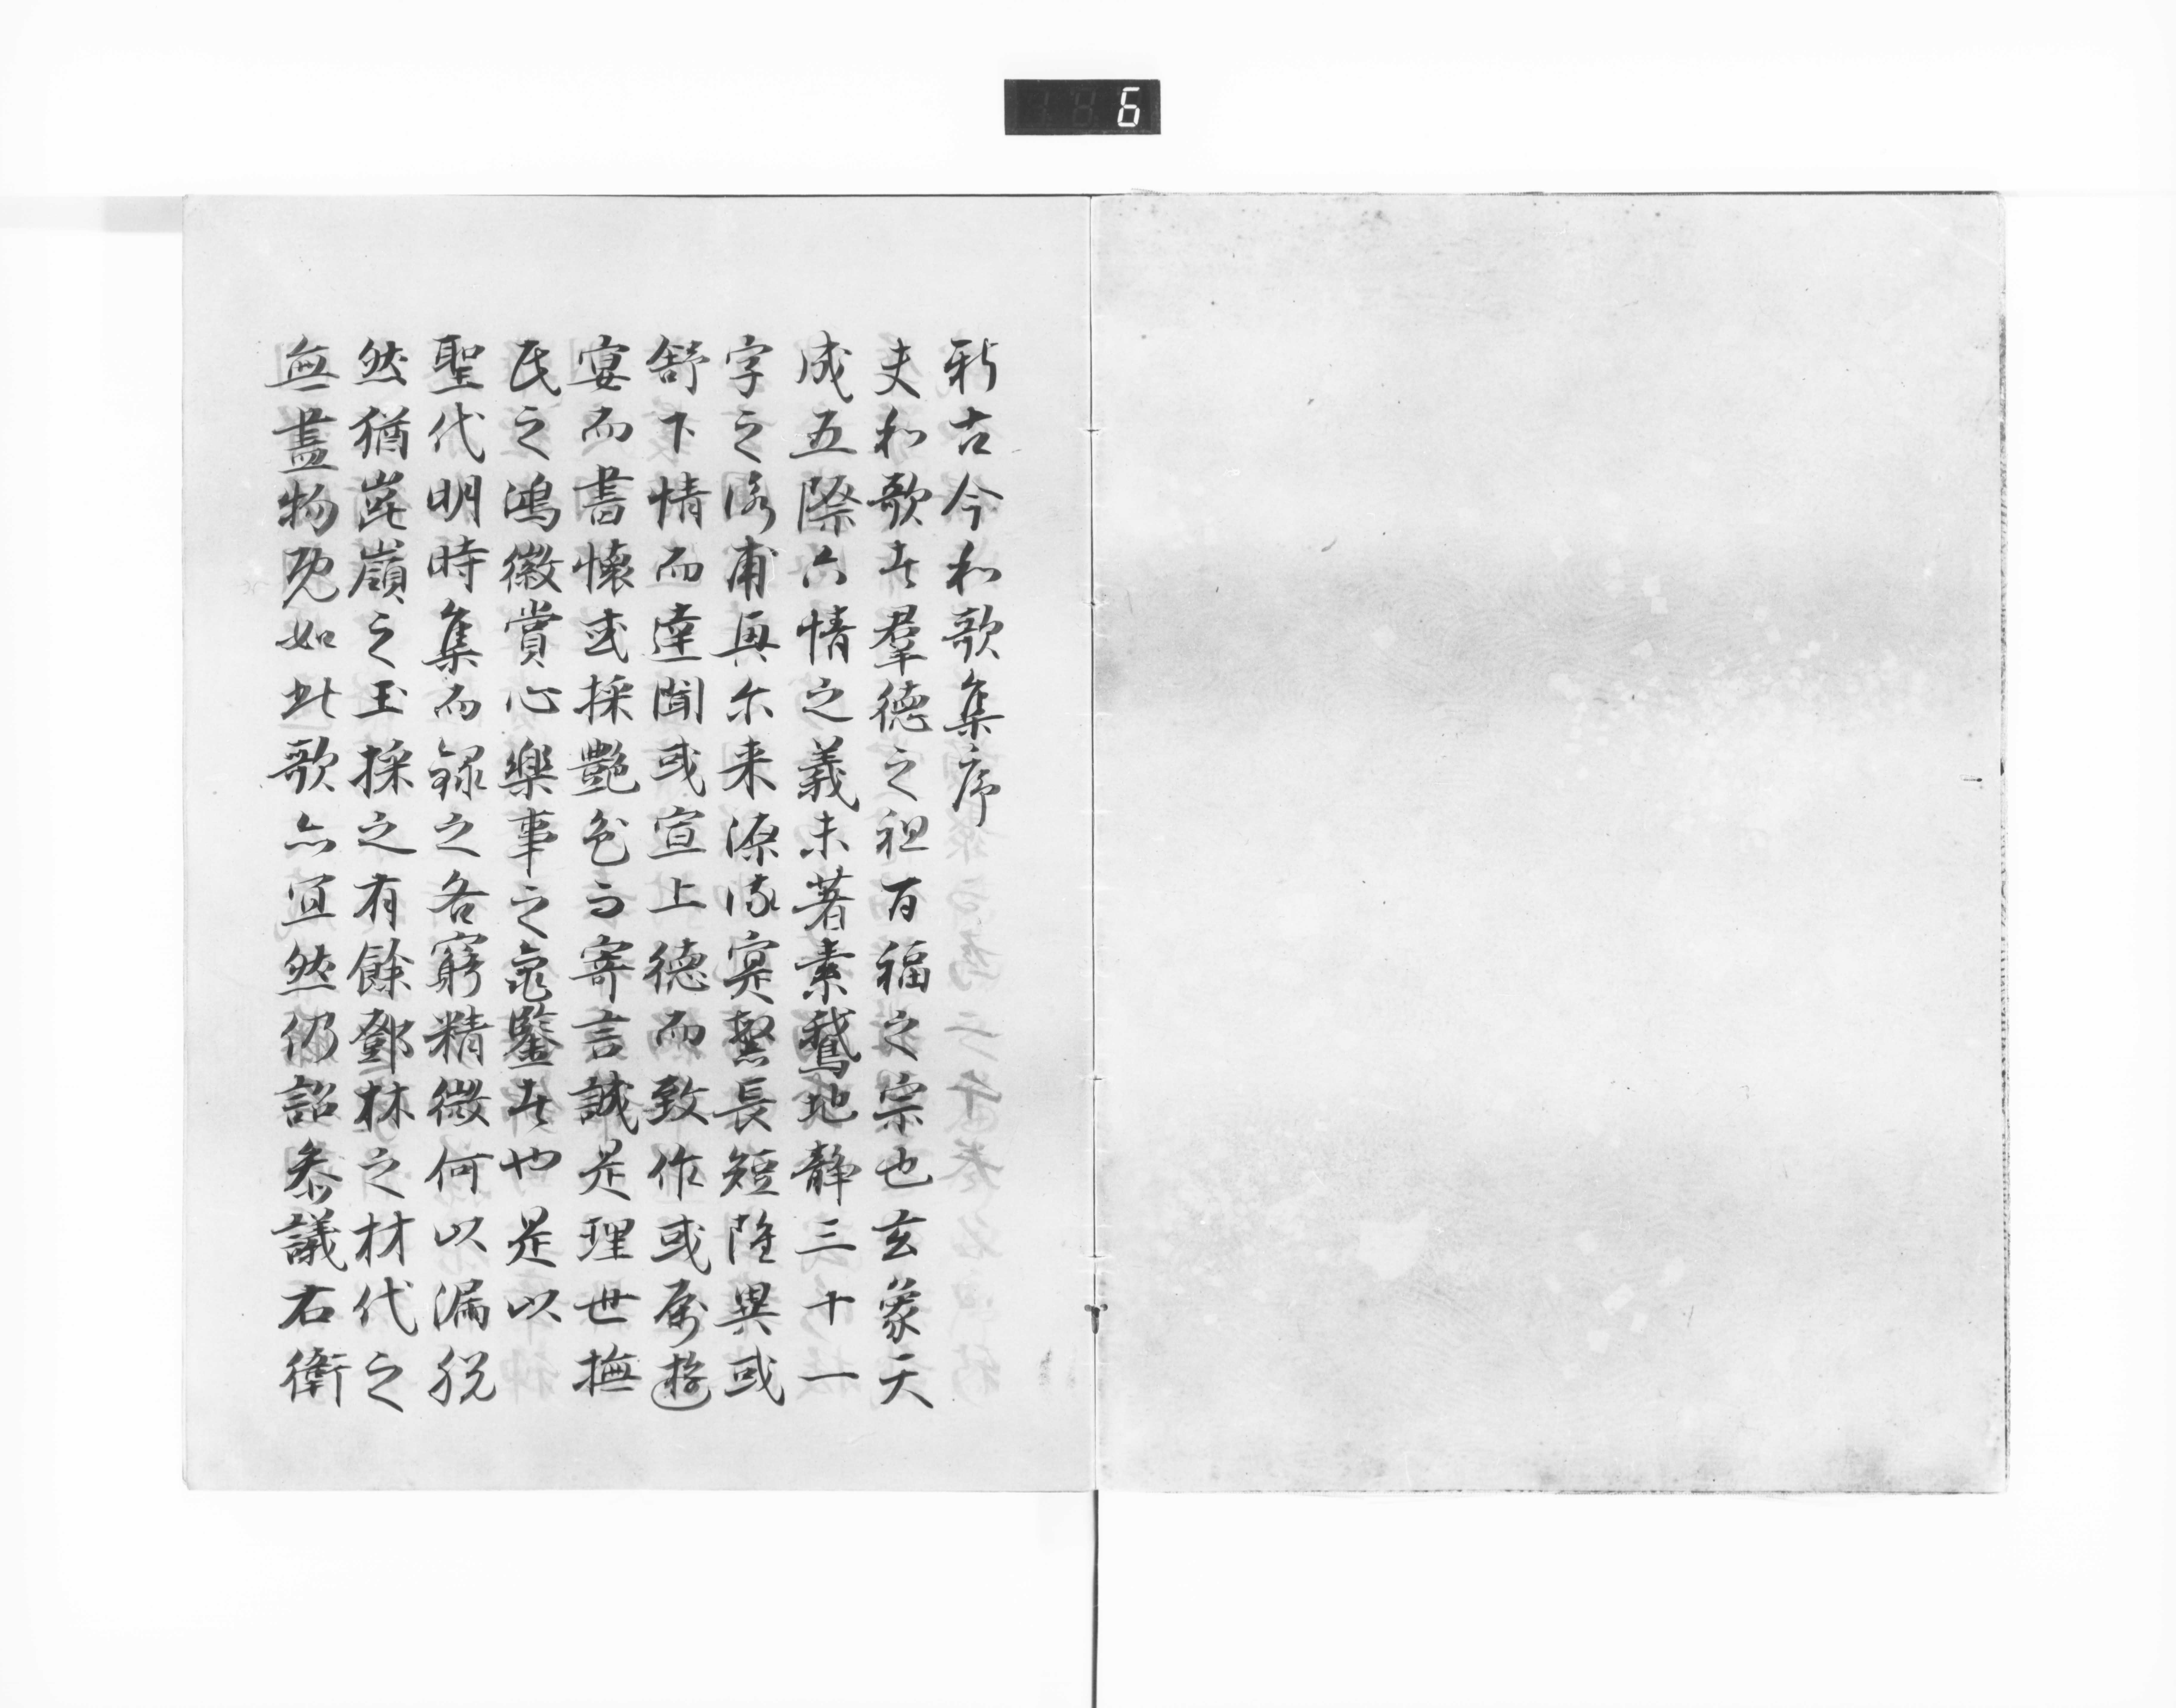 6
新古今和歌集序
夫和歌者羣徳之祖百福之宗也玄象天
成五際六情之義未著素鵞地静三十一
字之詠甫興尓来源流寔繁長短雖異或
舒下情而達聞或宣上徳而致作或属遊
宴而書懐或採艶色而寄言誠是理世撫
民之鴻徽賞心樂事之龜鑒者也是以
聖代明時集而録之各窮精微何以漏脱
然猶崑嶺之玉採之有餘鄧林之材伐之
無盡物既如此歌亦宜然仍詔参議右衛